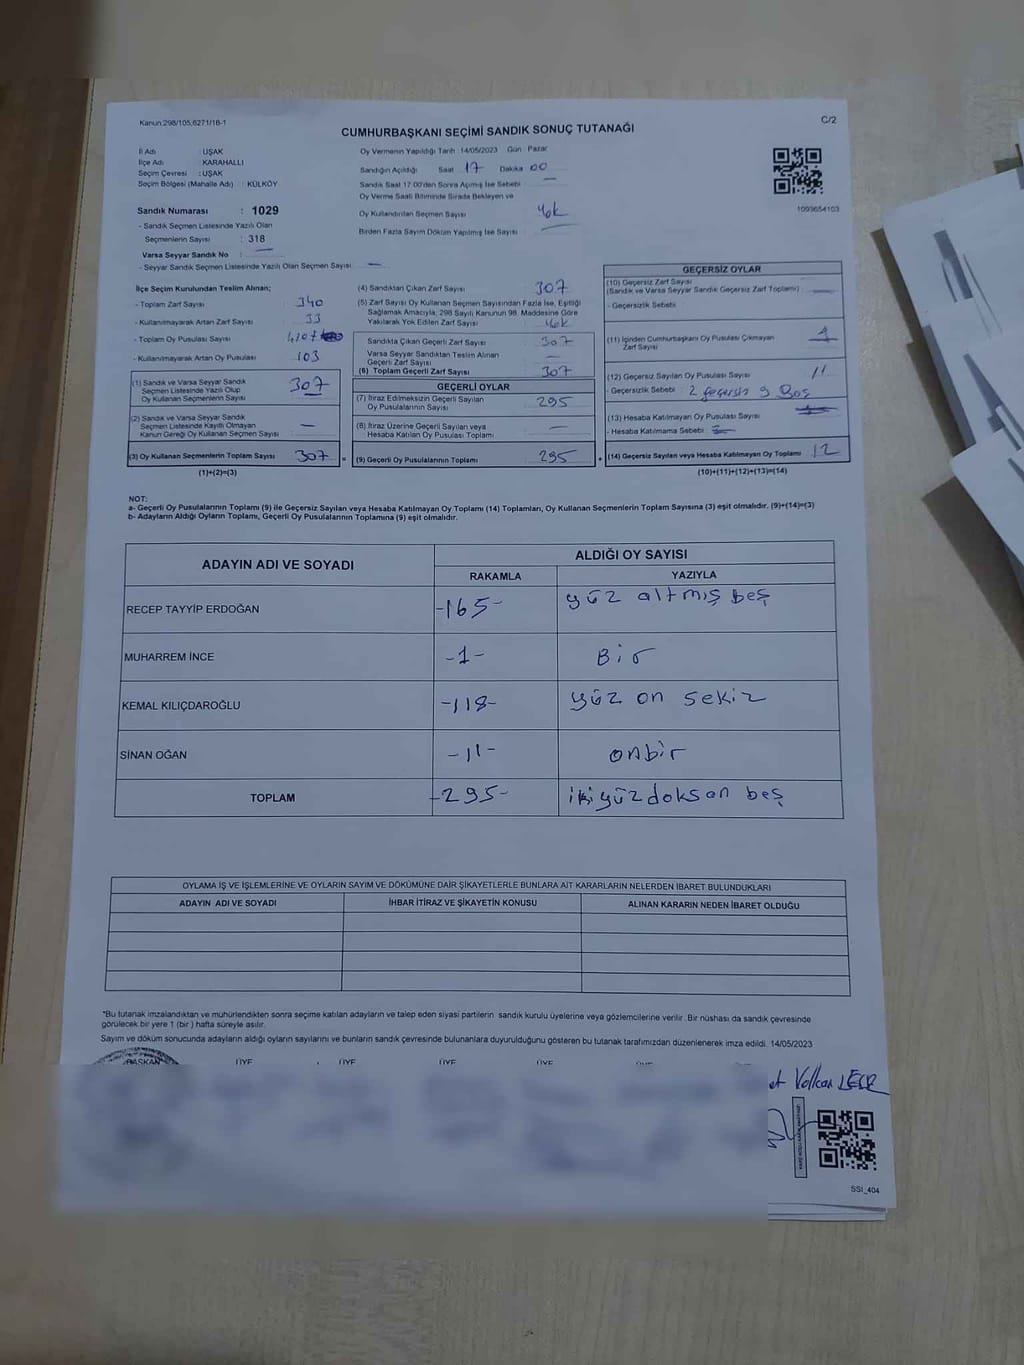 Kanun 298/105,6271/16-1
C/2
CUMHURBAŞKANI SEÇİMİ SANDIK SONUÇ TUTANAĞI
İl Adı : UŞAK
İlçe Adı : KARAHALLI
Seçim Çevresi : UŞAK
Seçim Bölgesi (Mahalle Adı) : KÜLKÖY
Sandık Numarası : 1029
- Sandık Seçmen Listesinde Yazılı Olan
Seçmenlerin Sayısı : 318
Varsa Seyyar Sandık No : —
- Seyyar Sandık Seçmen Listesinde Yazılı Olan Seçmen Sayısı : —
Oy Vermenin Yapıldığı Tarih :14/05/2023 Gün : Pazar
Sandığın Açıldığı Saat 17 Dakika 00
Sandık Saat 17:00'den Sonra Açılmış İse Sebebi —
Oy Verme Saati Bitiminde Sırada Bekleyen ve
Oy Kullandırılan Seçmen Sayısı Yok
Birden Fazla Sayım Döküm Yapılmış İse Sayısı —
1009654103
İlçe Seçim Kurulundan Teslim Alınan;
- Toplam Zarf Sayısı 340
- Kullanılmayarak Artan Zarf Sayısı 33
- Toplam Oy Pusulası Sayısı
- Kullanılmayarak Artan Oy Pusulası 103
(1) Sandık ve Varsa Seyyar Sandık
Seçmen Listesinde Yazılı Olup
Oy Kullanan Seçmenlerin Sayısı 307
(2) Sandık ve Varsa Seyyar Sandık
Seçmen Listesinde Kayıtlı Olmayan
Kanun Gereği Oy Kullanan Seçmen Sayısı —
(3) Oy Kullanan Seçmenlerin Toplam Sayısı 307
(1)+(2)=(3)
(4) Sandıktan Çıkan Zarf Sayısı 307
(5) Zarf Sayısı Oy Kullanan Seçmen Sayısından Fazla İse, Eşitliği
Sağlamak Amacıyla; 298 Sayılı Kanunun 98. Maddesine Göre
Yakılarak Yok Edilen Zarf Sayısı Yok
Sandıkta Çıkan Geçerli Zarf Sayısı 307
Varsa Seyyar Sandıktan Teslim Alınan
Geçerli Zarf Sayısı —
(6) Toplam Geçerli Zarf Sayısı 307
GEÇERLİ OYLAR
(7) İtiraz Edilmeksizin Geçerli Sayılan
Oy Pusulalarının Sayısı 295
(8) İtiraz Üzerine Geçerli Sayılan veya
Hesaba Katılan Oy Pusulası Toplamı —
= (9) Geçerli Oy Pusulalarının Toplamı 295 +
GEÇERSİZ OYLAR
(10) Geçersiz Zarf Sayısı
(Sandık ve Varsa Seyyar Sandık Geçersiz Zarf Toplamı) : —
- Geçersizlik Sebebi
(11) İçinden Cumhurbaşkanı Oy Pusulası Çıkmayan
Zarf Sayısı 1
(12) Geçersiz Sayılan Oy Pusulası Sayısı 11
- Geçersizlik Sebebi : 2 geçersiz 9 Boş
(13) Hesaba Katılmayan Oy Pusulası Sayısı
- Hesaba Katılmama Sebebi :
(14) Geçersiz Sayılan veya Hesaba Katılmayan Oy Toplamı 12
(10)+(11)+(12)+(13)=(14)
NOT:
a- Geçerli Oy Pusulalarının Toplamı (9) ile Geçersiz Sayılan veya Hesaba Katılmayan Oy Toplamı (14) Toplamları, Oy Kullanan Seçmenlerin Toplam Sayısına (3) eşit olmalıdır. (9)+(14)=(3)
b- Adayların Aldığı Oyların Toplamı, Geçerli Oy Pusulalarının Toplamına (9) eşit olmalıdır.
ADAYIN ADI VE SOYADI ALDIĞI OY SAYISI
RAKAMLA YAZIYLA
RECEP TAYYİP ERDOĞAN -165- yüz altmış beş
MUHARREM İNCE -1- Bir
KEMAL KILIÇDAROĞLU -118- yüz on sekiz
SİNAN OĞAN -11- onbir
TOPLAM -295- ikiyüzdoksan beş
OYLAMA İŞ VE İŞLEMLERİNE VE OYLARIN SAYIM VE DÖKÜMÜNE DAİR ŞİKAYETLERLE BUNLARA AİT KARARLARIN NELERDEN İBARET BULUNDUKLARI
ADAYIN ADI VE SOYADI İHBAR İTİRAZ VE ŞİKAYETİN KONUSU ALINAN KARARIN NEDEN İBARET OLDUĞU
*Bu tutanak imzalandıktan ve mühürlendikten sonra seçime katılan adayların ve talep eden siyasi partilerin sandık kurulu üyelerine veya gözlemcilerine verilir. Bir nüshası da sandık çevresinde
görülecek bir yere 1 (bir ) hafta süreyle asılır.
Sayım ve döküm sonucunda adayların aldığı oyların sayılarını ve bunların sandık çevresinde bulunanlara duyurulduğunu gösteren bu tutanak tarafımızdan düzenlenerek imza edildi. 14/05/2023
BAŞKAN ÜYE ÜYE ÜYE ÜYE
Volkan
SSI_404